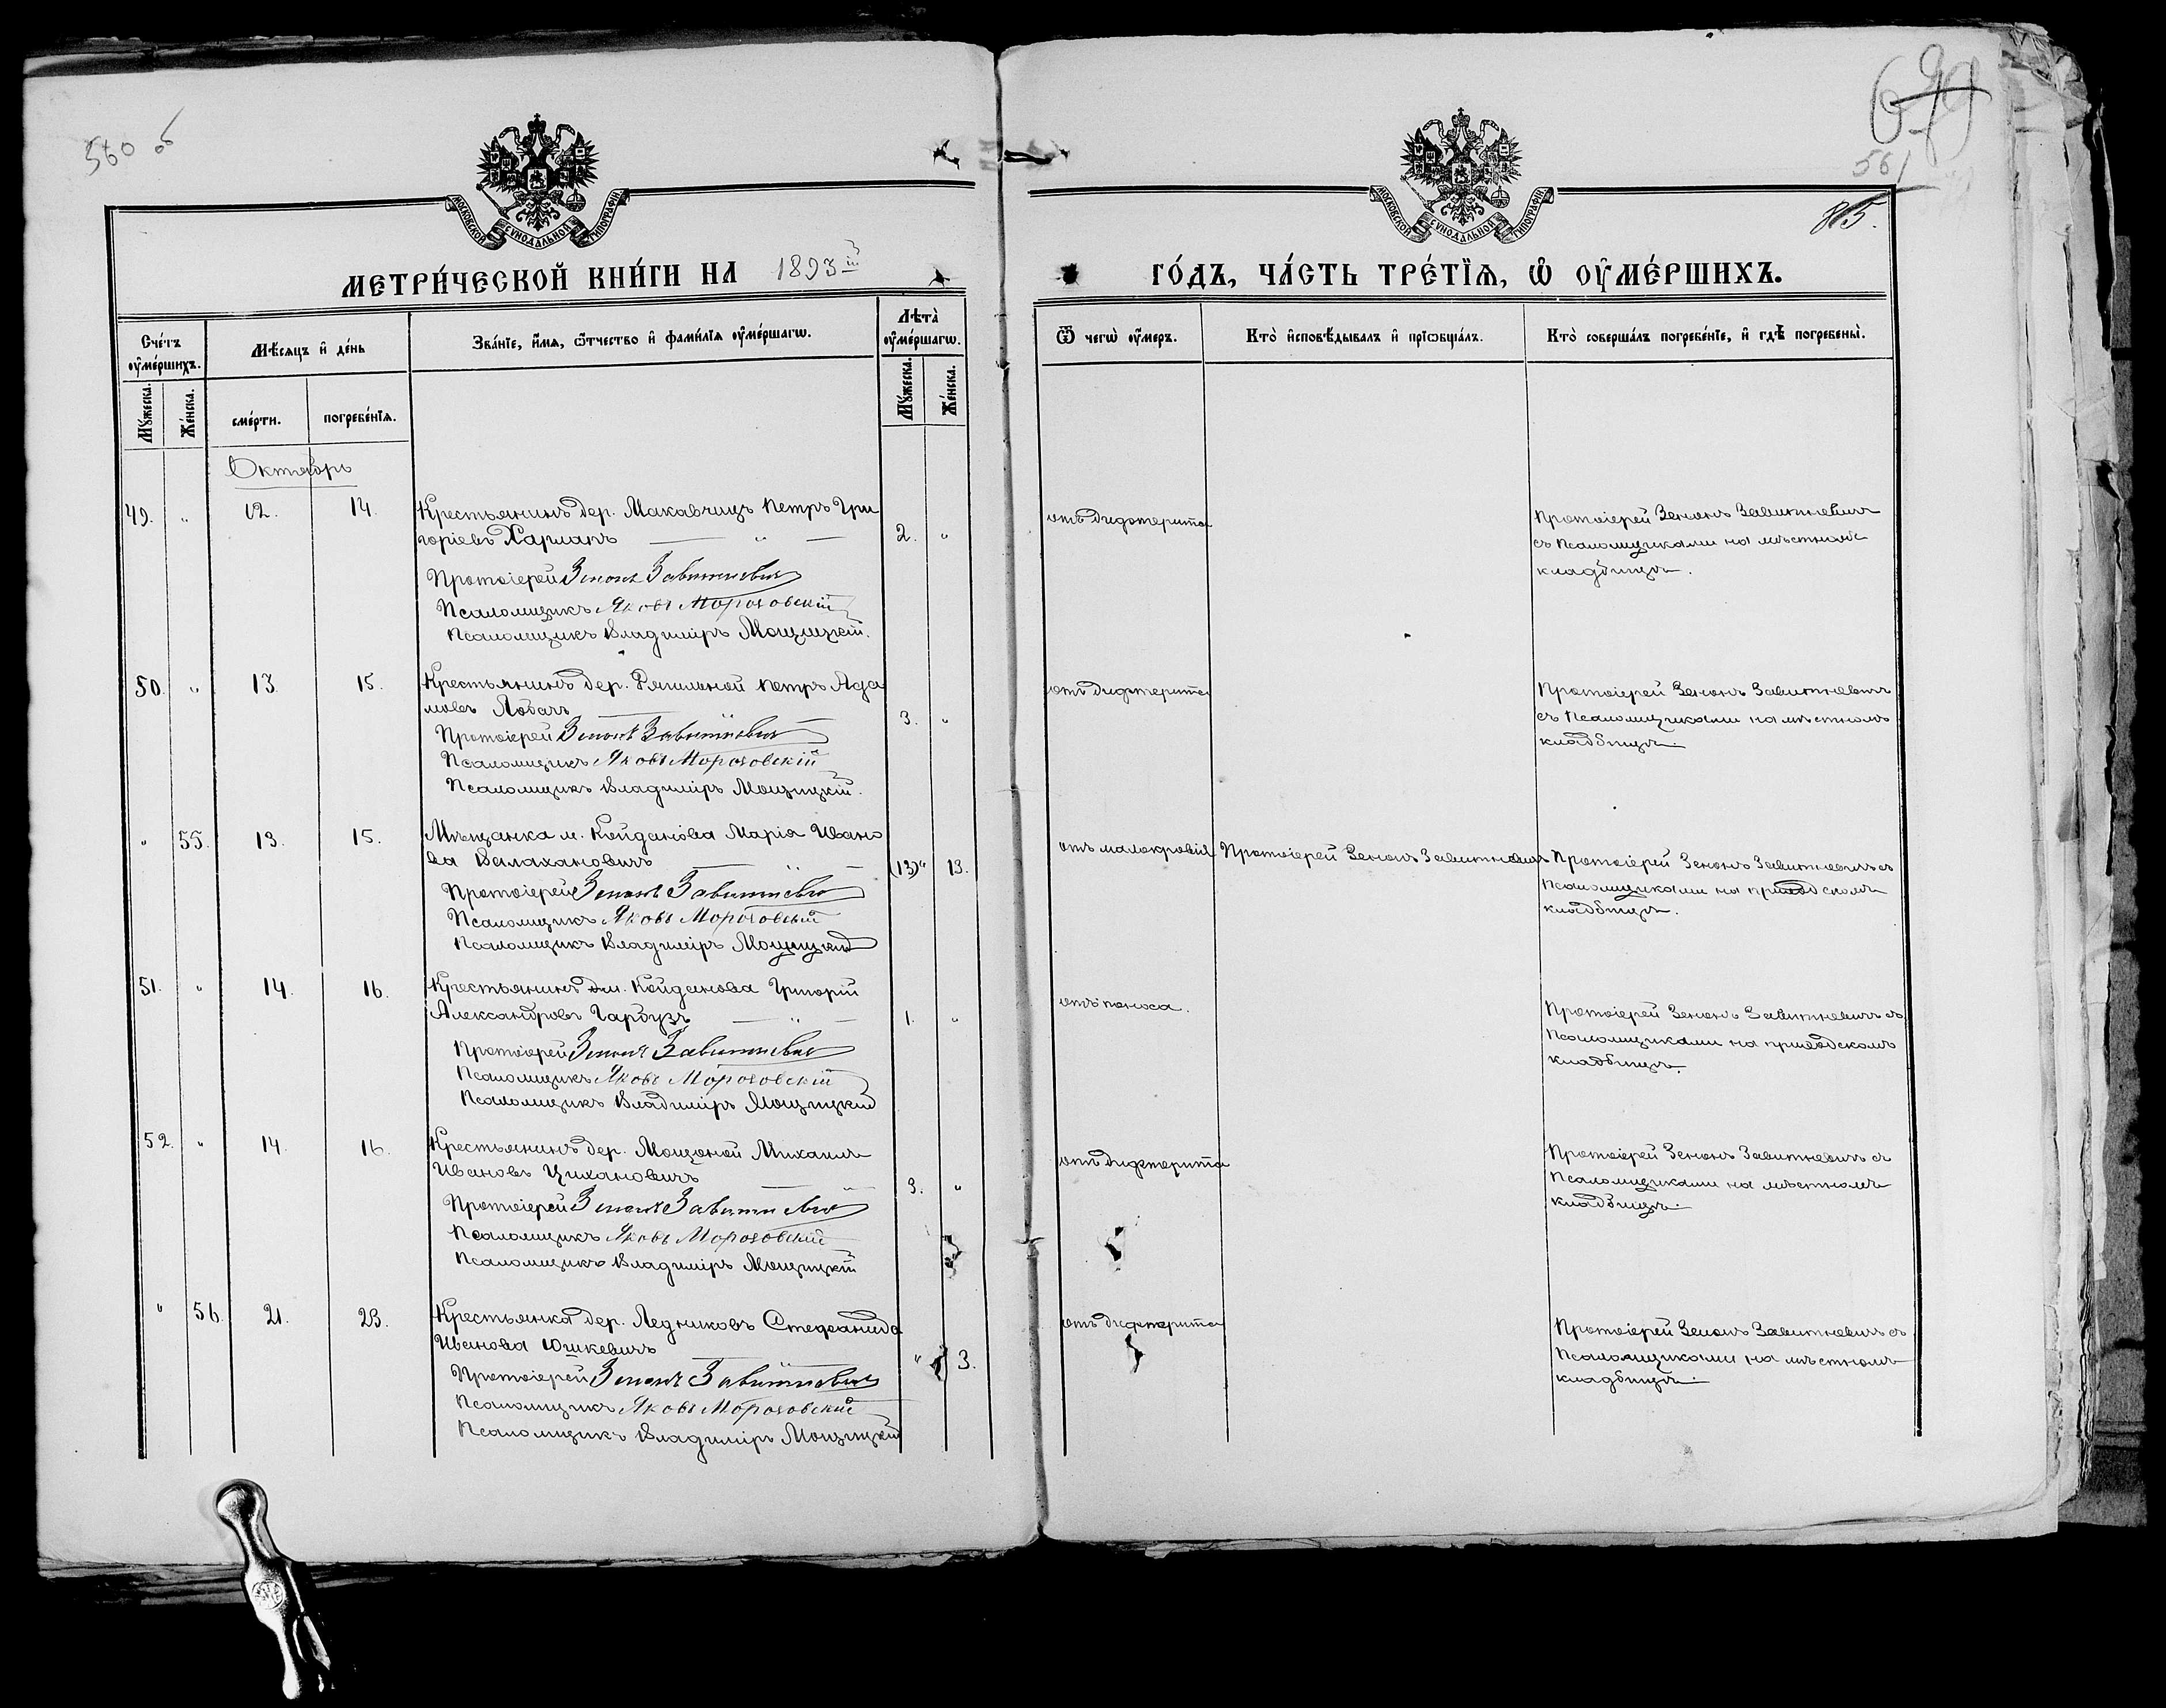 560 об
МОСКОВСКОЙ СѴНОДАЛЬНОЙ ТИПОГРАФІИ
МЕТРИ́ЧЕСКОЙ КНИ́ГИ НА 1893 ій
Сче́тъ ᲂу҆ме́ршихъ.
Мѣ́сяцъ и҆ де́нь
Зва́нїе, и҆́мя, ѻ҆́тчество и҆ фамѝлїя ᲂу҆ме́ршагѡ.
Лѣта̀ ᲂу҆ме́ршагѡ.
Мꙋ́жеска.
Же́нска.
сме́рти.
погребе́нїя.
Мꙋ́жеска.
Же́нска.
Октябрь
49. " 12. 14. Крестьянинъ дер. Макавчицъ Петръ Гри
горіевъ Харланъ — " — 2. "
Протоіерей Зенонъ Завитневичъ
Псаломщикъ Яковъ Морозовскій
Псаломщикъ Владиміръ Мощицкій.
50. " 13. 15. Крестьянинъ дер. Петръ Ада
мовъ Лобачъ — 3. "
Протоіерей Зенонъ Завитневичъ
Псаломщикъ Яковъ Морозовскій
Псаломщикъ Владиміръ Мощицкій.
" 55. 13. 15. Мѣщанка м. Койданова Марія Ивано
ва Валахановичъ — " — (13)" 13.
Протоіерей Зенонъ Завитневичъ
Псаломщикъ Яковъ Морозовскій
Псаломщикъ Владиміръ Мощицкій
51. " 14. 16. Крестьянинъ м. Койданова Григорій
Александровъ Гарбузъ — " — 1. "
Протоіерей Зенонъ Завитневичъ
Псаломщикъ Яковъ Морозовскій
Псаломщикъ Владиміръ Мощицкій
52. " 14. 16. Крестьянинъ дер. Мощоной Михаилъ
Ивановъ Цихановичъ — " — 3. "
Протоіерей Зенонъ Завитневичъ
Псаломщикъ Яковъ Морозовскій
Псаломщикъ Владиміръ Мощицкій
" 56. 21. 23. Крестьянка дер. Ледниковъ Стефанида
Иванова Юшкевичъ " 3.
Протоіерей Зенонъ Завитневичъ
Псаломщикъ Яковъ Морозовскій
Псаломщикъ Владиміръ Мощицкій
561
85.
МОСКОВСКОЙ СѴНОДАЛЬНОЙ ТИПОГРАФІИ
ГО́ДЪ, ЧА́СТЬ ТРЕ́ТЇЯ, Ѡ҆ ОУ҆МЕ́РШИХЪ.
Ѿ чегѡ̀ ᲂу҆́меръ.
Кто̀ и҆сповѣ́дывалъ и҆ прїѡбща́лъ.
Кто̀ соверша́лъ погребе́нїе, и҆ гдѣ̀ погребены̀.
отъ дифтерита
Протоіерей Зенонъ Завитневичъ
съ Псаломщиками на мѣстномъ
кладбищѣ.
отъ дифтерита
Протоіерей Зенонъ Завитневичъ
съ Псаломщиками на мѣстномъ
кладбищѣ.
отъ малокровія Протоіерей Зенонъ Завитневичъ Протоіерей Зенонъ Завитневичъ съ
Псаломщиками на приходскомъ
кладбищѣ.
отъ поноса.
Протоіерей Зенонъ Завитневичъ съ
Псаломщиками на приходскомъ
кладбищѣ.
отъ дифтерита
Протоіерей Зенонъ Завитневичъ съ
Псаломщиками на мѣстномъ
кладбищѣ.
отъ дифтерита
Протоіерей Зенонъ Завитневичъ съ
Псаломщиками на мѣстномъ
кладбищѣ.